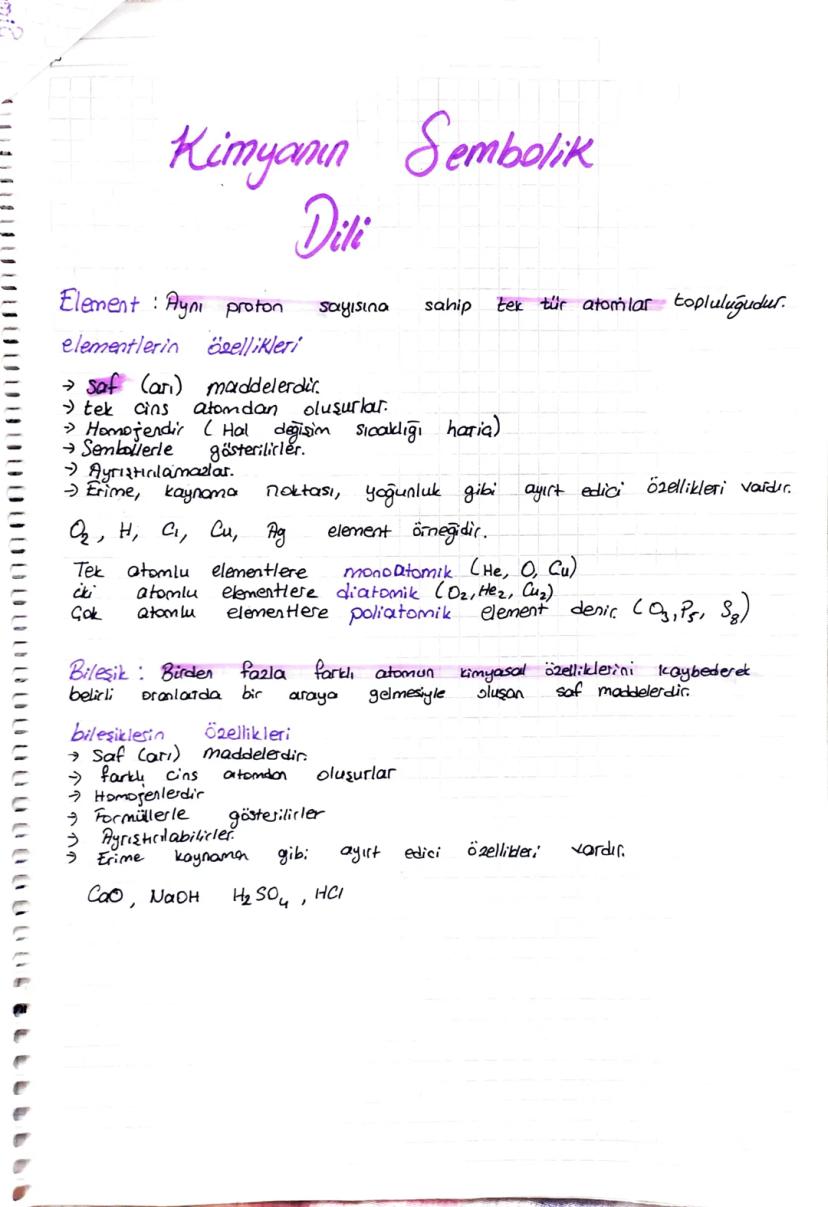 Kimyanın Sembolik
Dili
Element : Aynı proton sayısına sahip tek tür atomlar topluluğudur.
elementlerin özellikleri
→ saf (arı) maddelerdir.
→ tek cins atomdan oluşurlar.
→ Homojendir ( Hal değişim sıcaklığı hariç)
→ Sembollerle gösterilirler.
→ Ayrıştırılamazlar.
→ Erime, kaynama noktası, yoğunluk gibi ayırt edici özellikleri vardır.
O₂ , H, Cı, Cu, Ag element örneğidir.
Tek atomlu elementlere monoatomik (He, O, Cu)
iki atomlu elementlere diatomik (O₂, He₂, Cu₂)
Çok atomlu elementlere poliatomik element denir. (O₃, P₅, S₈)
Bileşik : Birden fazla farklı atomun kimyasal özelliklerini kaybederek
belirli oranlarda bir araya gelmesiyle oluşan saf maddelerdir.
bileşiklerin özellikleri
→ Saf (arı) maddelerdir.
→ farklı cins atomdan oluşurlar
→ Homojenlerdir
→ Formüllerle gösterilirler
→ Ayrıştırılabilirler.
→ Erime kaynama gibi ayırt edici özellikleri vardır.
CaO , NaOH H₂SO₄ , HCl